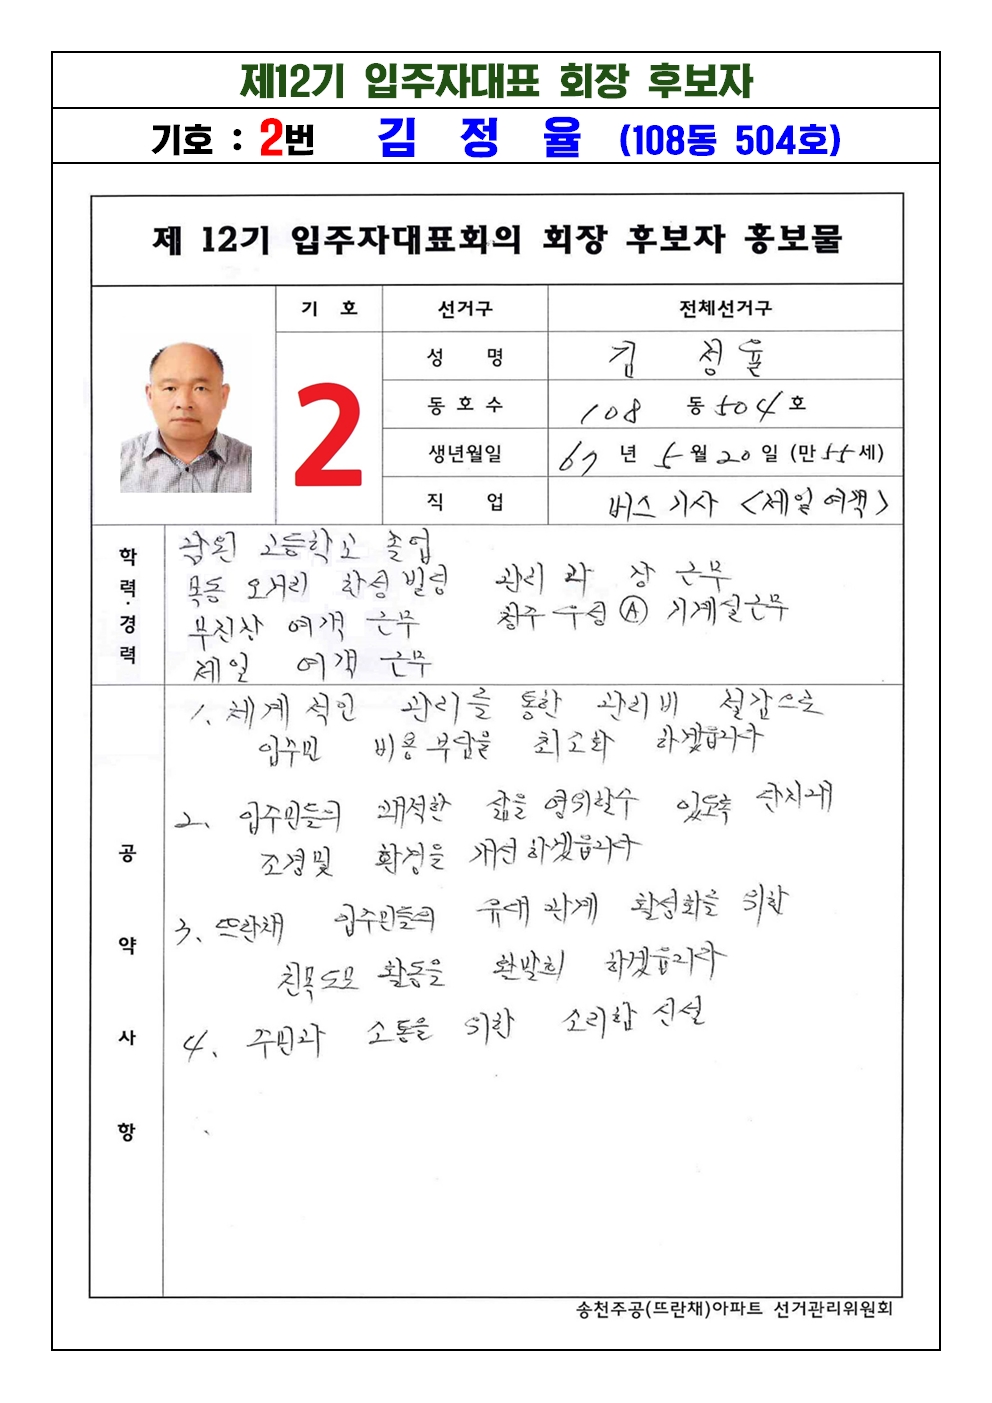 제12기 입주자대표 회장 후보자
기호 : 2번 김 정 율 (108동 504호)
제 12기 입주자대표회의 회장 후보자 홍보물
기 호 선거구 전체선거구
2
성 명 김 정 율
동 호 수 108 동 504 호
생년월일 67 년 5 월 20 일 (만 55 세)
직 업 버스 기사 <제일 여객>
학력·경력
고등학교 졸업
목동 오거리 한성 빌딩 관리 과 장 근무
부진상 여객 근무 청주 우성 Ⓐ 기계실근무
제일 여객 근무
공약사항
1. 체계 적인 관리를 통한 관리비 절감으로
입주민 비용 부담을 최소화 하겠읍니다
2. 입주민들의 쾌적한 삶을 영위할수 있도록 단지내
조경및 환경을 개선하겠읍니다
3. 뜨란채 입주민들의 유대 관계 활성화를 위한
친목도모 활동을 활발히 하겠읍니다
4. 주민과 소통을 위한 소리함 신설
송천주공(뜨란채)아파트 선거관리위원회